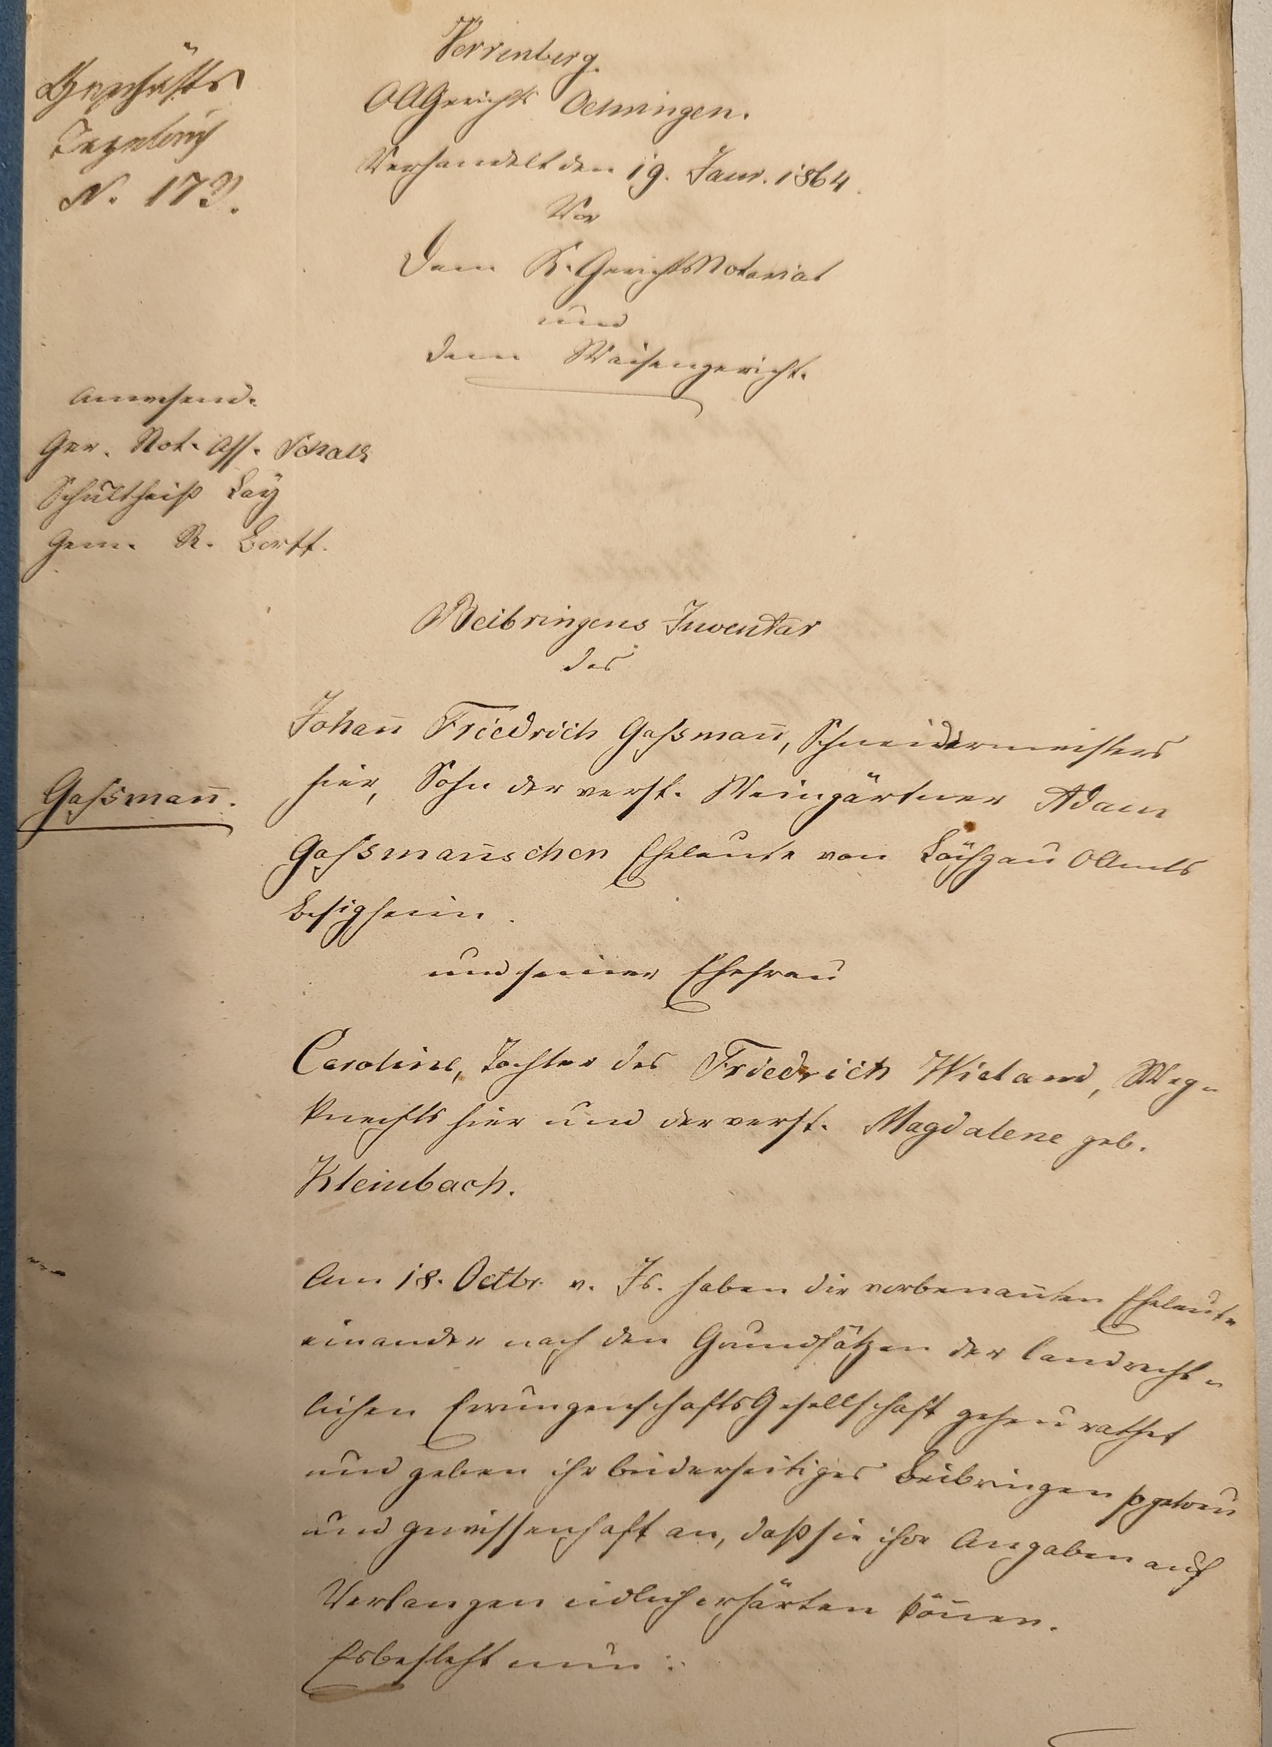 Verrenberg.
OAGerichts Oehringen.
Geschäfts
Tagebuch
N. 173.
Verhandelt den 19. Janr. 1864.
Vor
dem K. GerichtsNotariat
und
dem Waisengericht.
Anwesend.
Ger. Not. Ass. Schalk
Schultheiß Lay
Gem. R. Bortt.
Beibringens Inventar
des
Johan̄ Friedrich Gaſsman̄, Schneidermeisters
hier, Sohn der verst. Weingärtner Adam
Gaſsman̄.
Gaſsman̄schen Eheleute von Löchgau OAmts
Besigheim.
und seiner Ehefrau
Caroline, Tochter des Friedrich Wieland, Weg-
knechts hier und der verst. Magdalene geb.
Kleinbach.
Am 18. Octbr. v. Js. haben die vorbenan̄ten Eheleute
einander nach den Grundsätzen der landrecht-
lichen ErrungenschaftsGesellschaft geheurathet
und geben ihr beiderseitiges Beibringen so getreu
und gewissenhaft an, daß sie ihre Angaben auf
Verlangen eidlich erhärten kön̄en.
Es besteht nun: